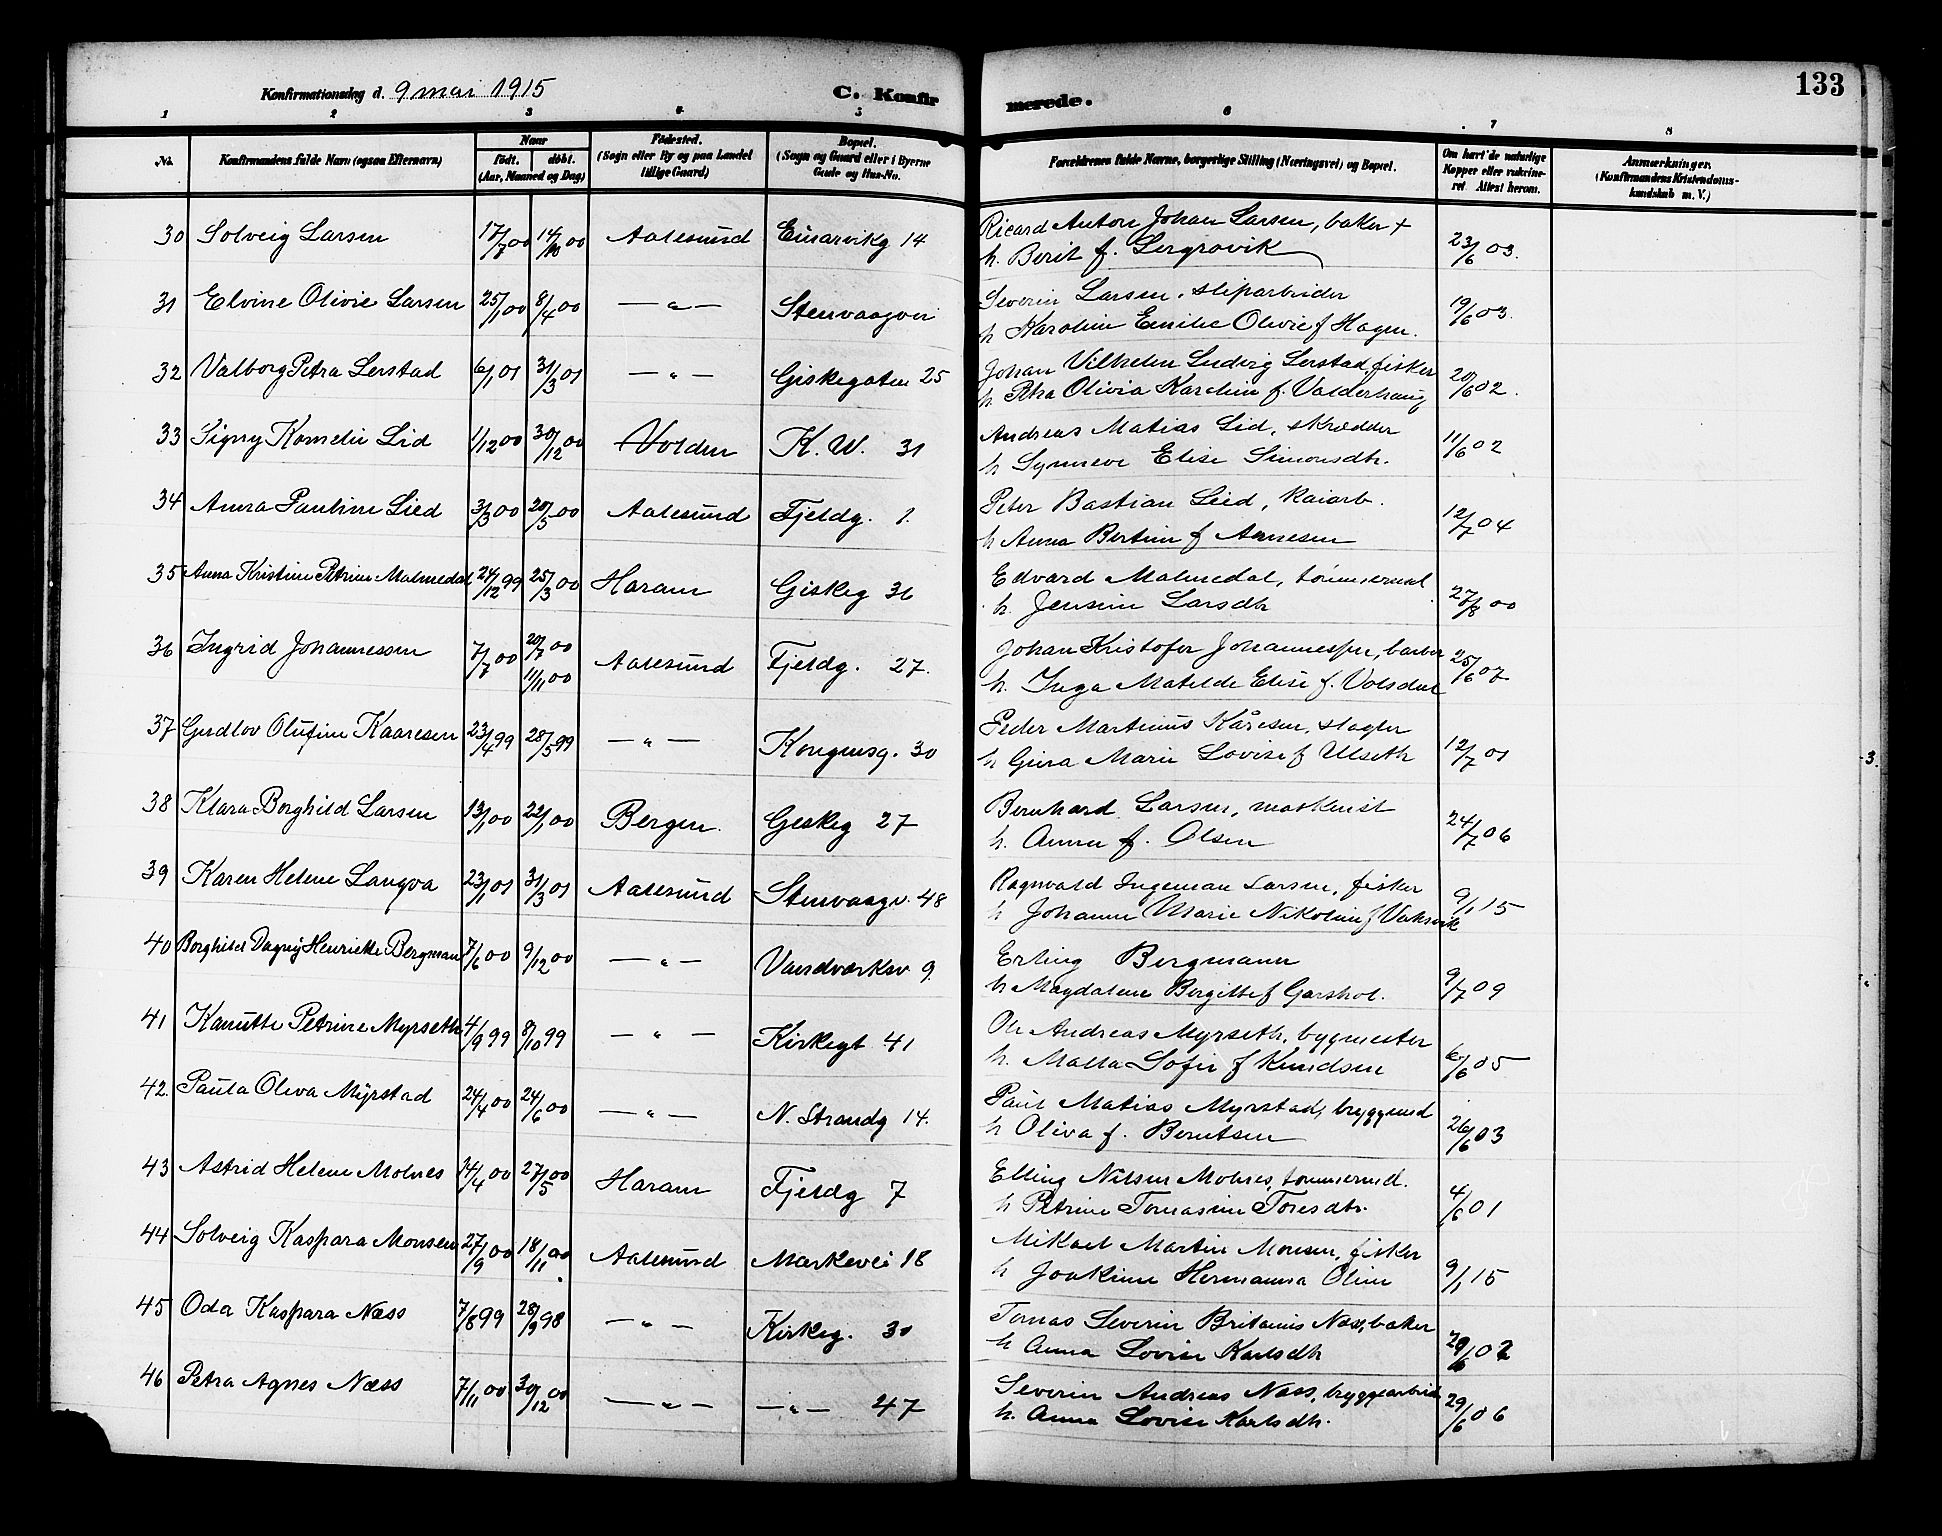 133
Konfirmationsdag d. 9 mai 1915 C. Konfirmerede.
1 2 3 4 5 6 7 8
No. Konfirmandens fulde Navn (ogsaa Efternavn) Naar født. døbt. (Aar, Maaned og Dag) Fødested. (Sogn eller By og paa Landet tillige Gaard) Bopæl. (Sogn og Gaard eller i Byerne Gade og Hus-No. Forældrenes fulde Navne, borgerlige Stilling (Næringsvei) og Bopæl. Om havt de naturlige Kopper eller vakcineret. Attest herom. Anmærkninger. (Konfirmandens Kristendomskundskab m. V.)
30 Solveig Larsen 17/7 00 14/10 00 Aalesund Einarvikg 14 Ricard Anton Johan Larsen, baker +
h. Berit f. Lergrovik 23/6 03.
31 Elvine Olivie Larsen 25/1 00 8/4 00 — " — Stenvaagvei Severin Larsen, sliparbeider
h Karolin Emilie Olivie f Hagen. 19/6 03.
32 Valborg Petra Lerstad 6/1 01 31/3 01 — " — Giskegaten 25 Johan Vilhelm Ludvig Lerstad, fisker
h Petra Olivia Karolin f. Valderhaug 20/6 02.
33 Signy Kornelie Lid 1/12 00 30/12 00 Volden K. W. 31 Andreas Matias Lid, skrædder
h Synneve Elise Simonsdtr. 11/6 02
34 Anna Pauline Lied 3/3 00 20/5 00 Aalesund Fjeldg. 1. Peter Bastian Lied, kaiarb.
h Anna Bertine f Arnesen 12/7 04
35 Anna Kristine Petrine Malmedal 24/12 99 25/3 00 Haram Giskeg 36 Edvard Malmedal, tømmermd.
h. Jensine Larsdtr 27/8 00
36 Ingrid Johannessen 7/7 00 20/7 00
11/11 00 Aalesund Fjeldg. 27. Johan Kristofer Johannessen, barber
h. Inga Matilde Elise f. Volsdal 25/6 07
37 Gudlov Olufine Kaaresen 23/4 99 28/5 99 — " — Kongensg. 30 Peder Martinus Kåresen, slagter
h Gina Marie Lovise f Ulseth 12/7 01
38 Klara Borghild Larsen 13/1 00 22/1 00 Bergen. Giskeg 27 Bernhard Larsen, maskinist
h. Anna f. Olsen 24/7 06
39 Karen Helene Langva 23/1 01 31/3 01 Aalesund Stenvaagv. 48 Ragnvald Ingeman Larsen, fisker
h Johanne Marie Nikoline f Vaksvik 9/1 15
40 Borghild Dagny Henriette Bergman 7/6 00 9/12 00 — " — Vandværksv 9. Erling Bergmann
h Magdalene Bergitte f Garshol. 9/7 09
41 Kanutte Petrine Myrseth 4/9 99 8/10 99 — " — Kirkegt 41 Ole Andreas Myrseth, bygmester
h. Malla Sofie f Knudsen 6/6 05
42. Paula Oliva Myrstad 24/4 00 24/6 00 — " — N. Strandg 14. Paul Matias Myrstad, bryggemd
h Oliva f. Berntsen 26/6 03
43 Astrid Helene Molnes 14/4 00 27/5 00 Haram Fjeldg 7 Elling Nilsen Molnes, tømmermd.
h Petrine Tomasine Toresdtr. 4/6 01
44 Solveig Kaspara Monsen 27/9 00 18/11 00 Aalesund Markevei 18 Mikael Martin Monsen, fisker
h Joakime Hermanna Oline 9/1 15
45 Oda Kaspara Næss 7/8 99 28/9 98 — " — Kirkeg. 30 Tomas Severin Britanus Næs, baker
h Anna Lovise Karlsdtr 29/6 02
46 Petra Agnes Næss 7/11 00 30/12 00 — " — — " — 47 Severin Andreas Næss, bryggearbeid
h. Anna Lovise Karlsdtr. 29/6 06